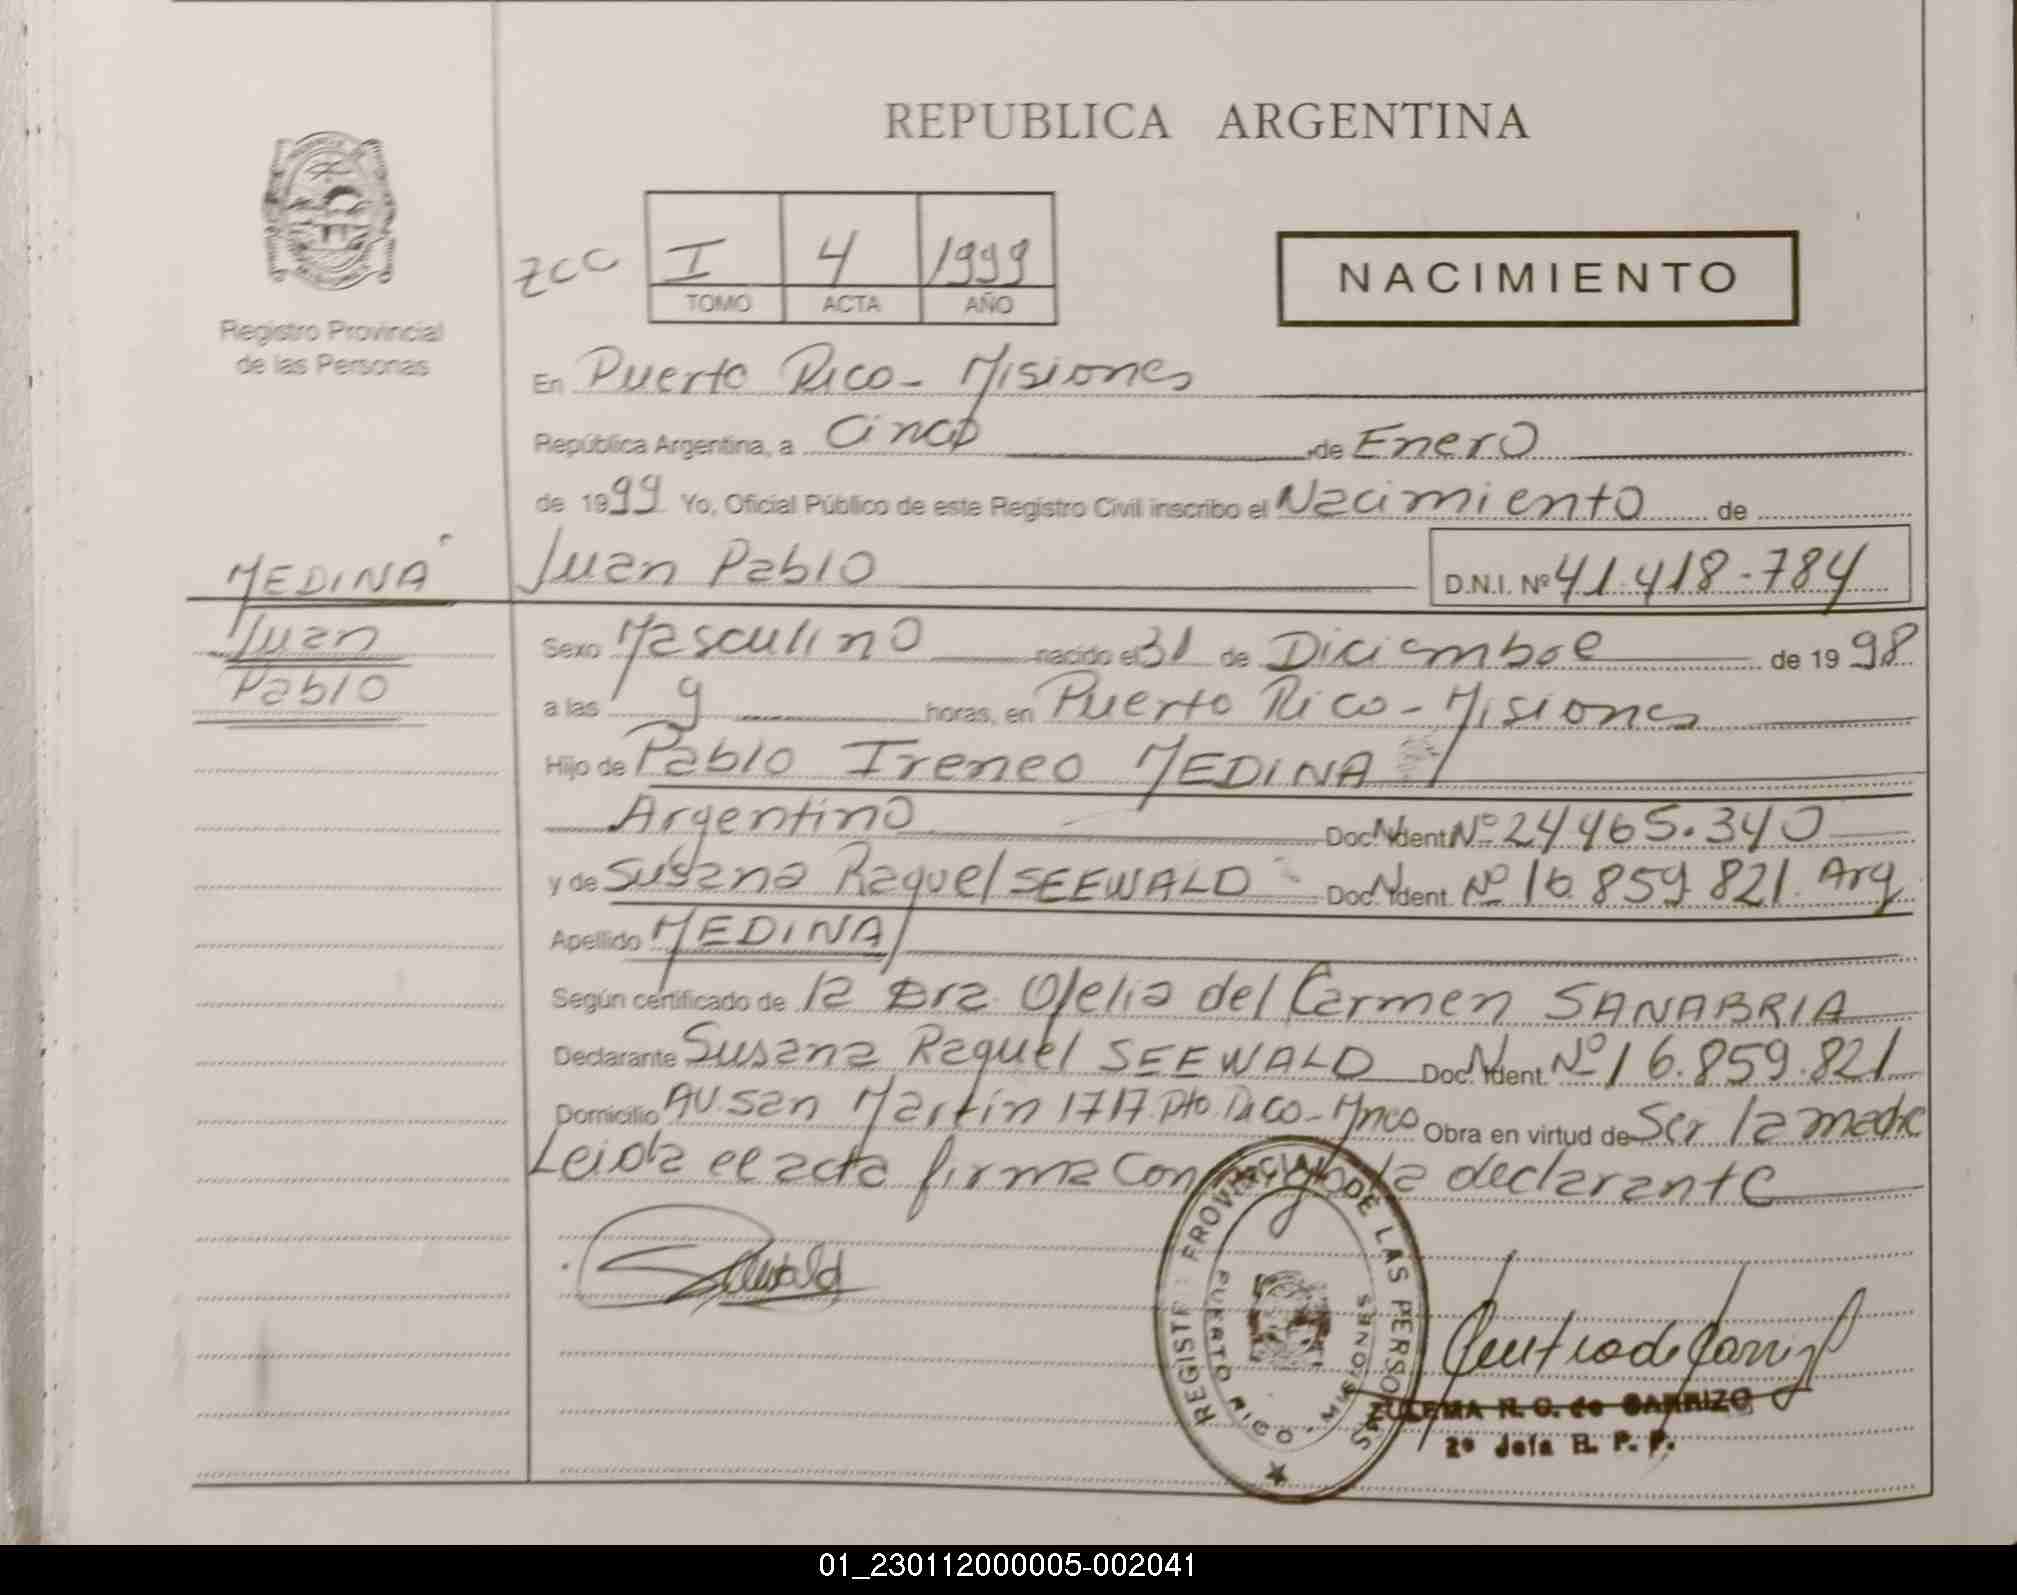 REPUBLICA ARGENTINA
Registro Provincial
de las Personas
zcc I 4 1999
TOMO ACTA AÑO
NACIMIENTO
En Puerto Rico - Misiones
República Argentina, a Cinco de Enero
de 1999 Yo, Oficial Público de este Registro Civil inscribo el Nacimiento de
MEDINA Juan Pablo D.N.I. Nº 41.418.784
Juan
Pablo
Sexo Masculino nacido el 31 de Diciembre de 1998
a las 9 horas, en Puerto Rico - Misiones
Hijo de Pablo Ireneo MEDINA
Argentino Doc. Ident. Nº 24465.340
y de Susana Raquel SEEWALD Doc. Ident. Nº 16.859.821. Arg
Apellido MEDINA
Según certificado de la Dra. Ofelia del Carmen SANABRIA
Declarante Susana Raquel SEEWALD Doc. Ident. Nº 16.859.821
Domicilio AV. San Martín 1717. Pto. Rico - Mnes Obra en virtud de Ser la madre
Leida el acta firma Conmigo la declarante
Seewald
REGISTRO PROVINCIAL DE LAS PERSONAS
PUERTO RICO - MISIONES
ZULEMA R. O. de CARRIZO
2º Jefa R. P. P.
01_230112000005-002041